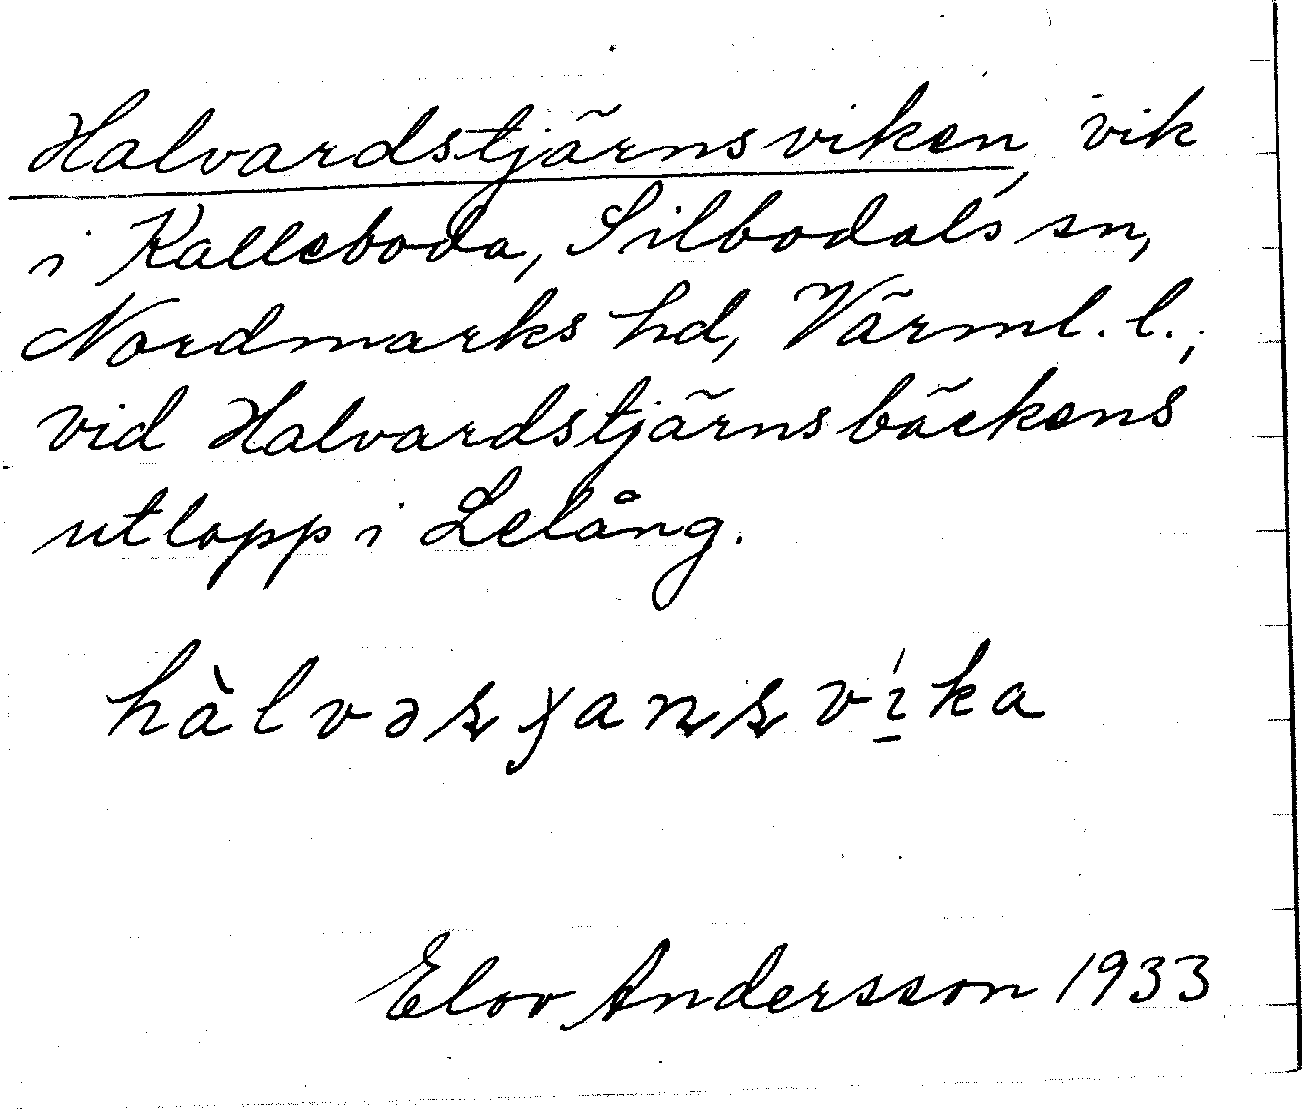 Halvardstjärnsviken, vik
i Kalleboda, Silbodals sn,
Nordmarks hd, Värml. l.;
vid Halvardstjärnsbäckens
utlopp i Lelång.
hàlvəsɟansvíka
Elov Andersson 1933